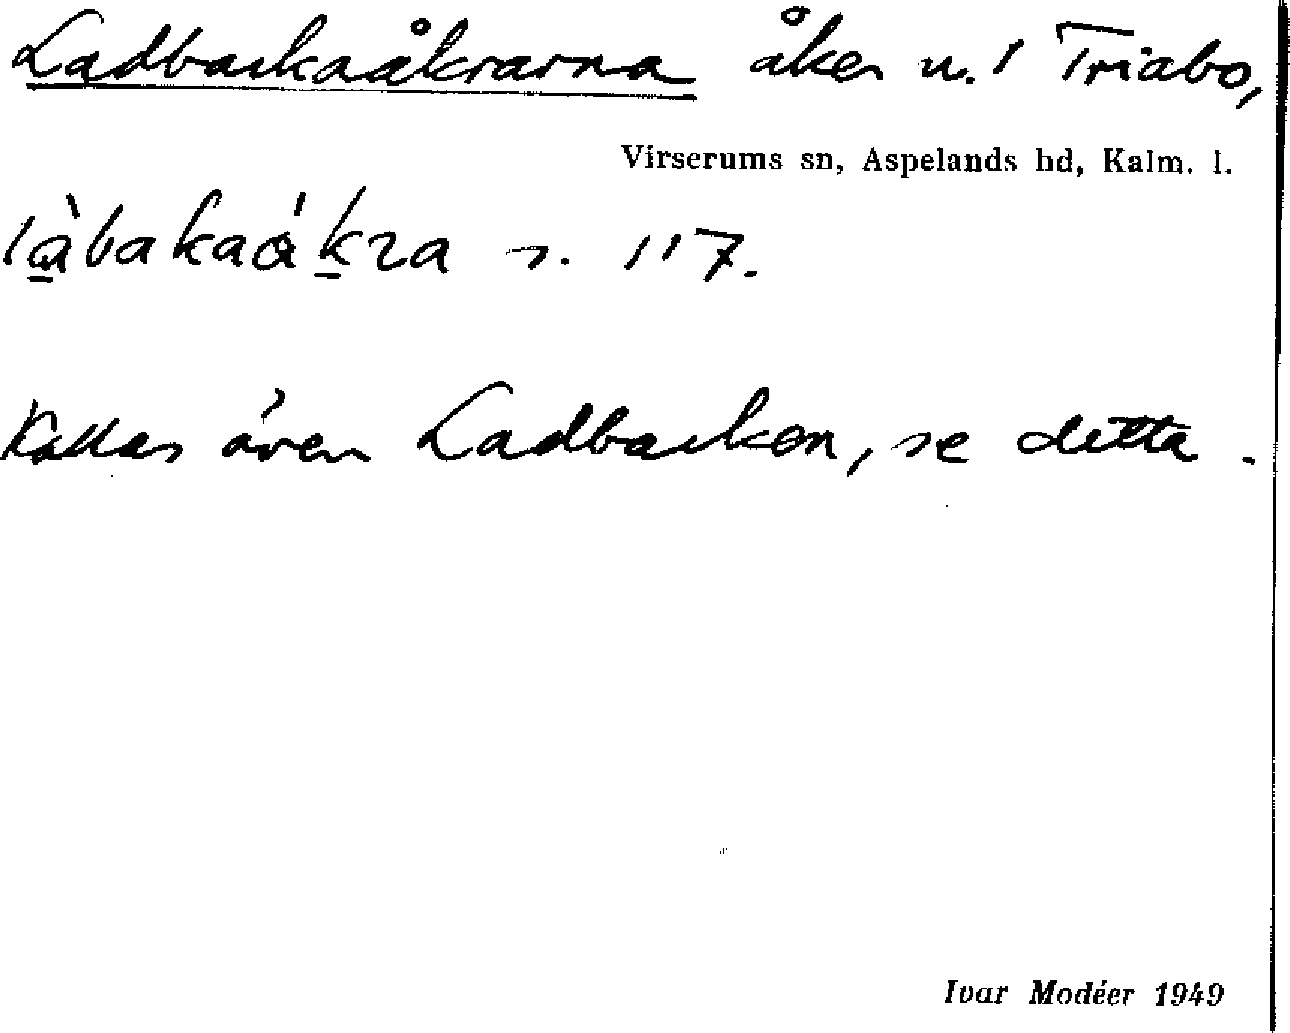 Ladbackaåkrarna åker u. 1 Triabo,
Virserums sn, Aspelands hd, Kalm. l.
là̱bakaá̊ḵra s. 117.
Kallas även Ladbacken, se detta.
Ivar Modéer 1949